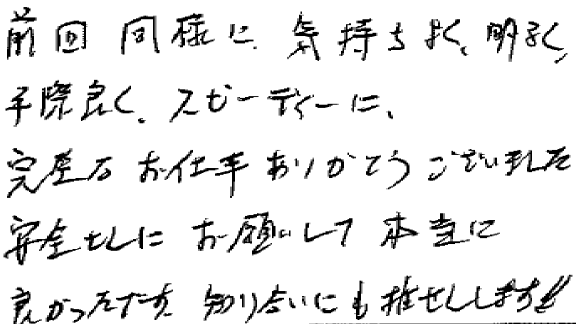 前回同様に、気持ちよく、明るく、
手際良く、スピーディーに、
完璧なお仕事ありがとうございました
安全〇〇にお願いして本当に
良かったです 知り合いにも推せんします!!